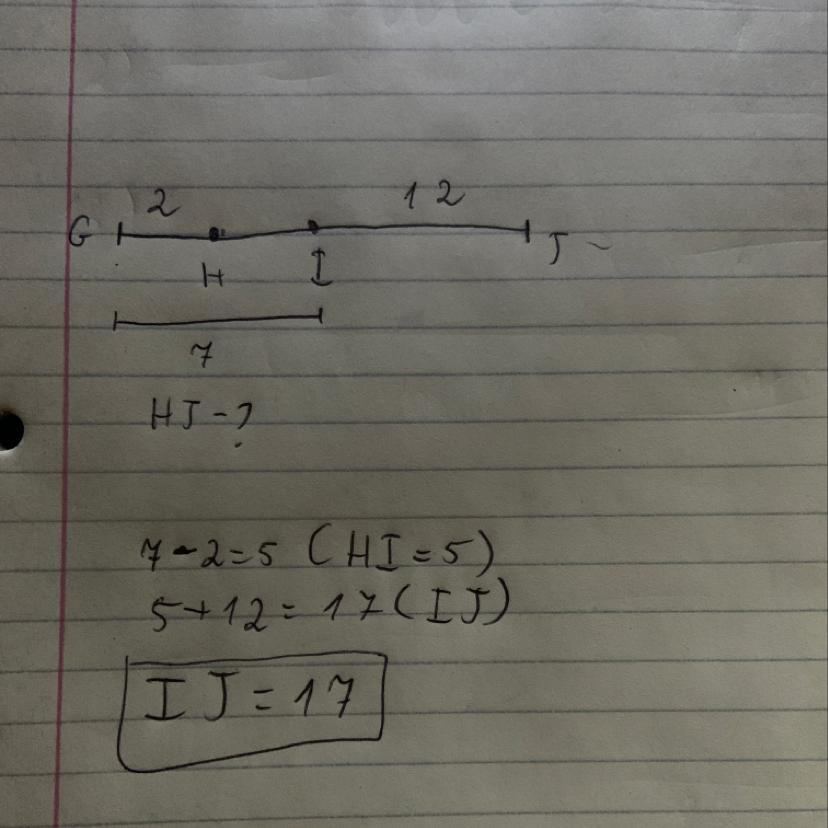 2 12
G J ~
H I
7
HJ - ?
7 - 2 = 5 (HI = 5)
5 + 12 = 17 (IJ)
IJ = 17